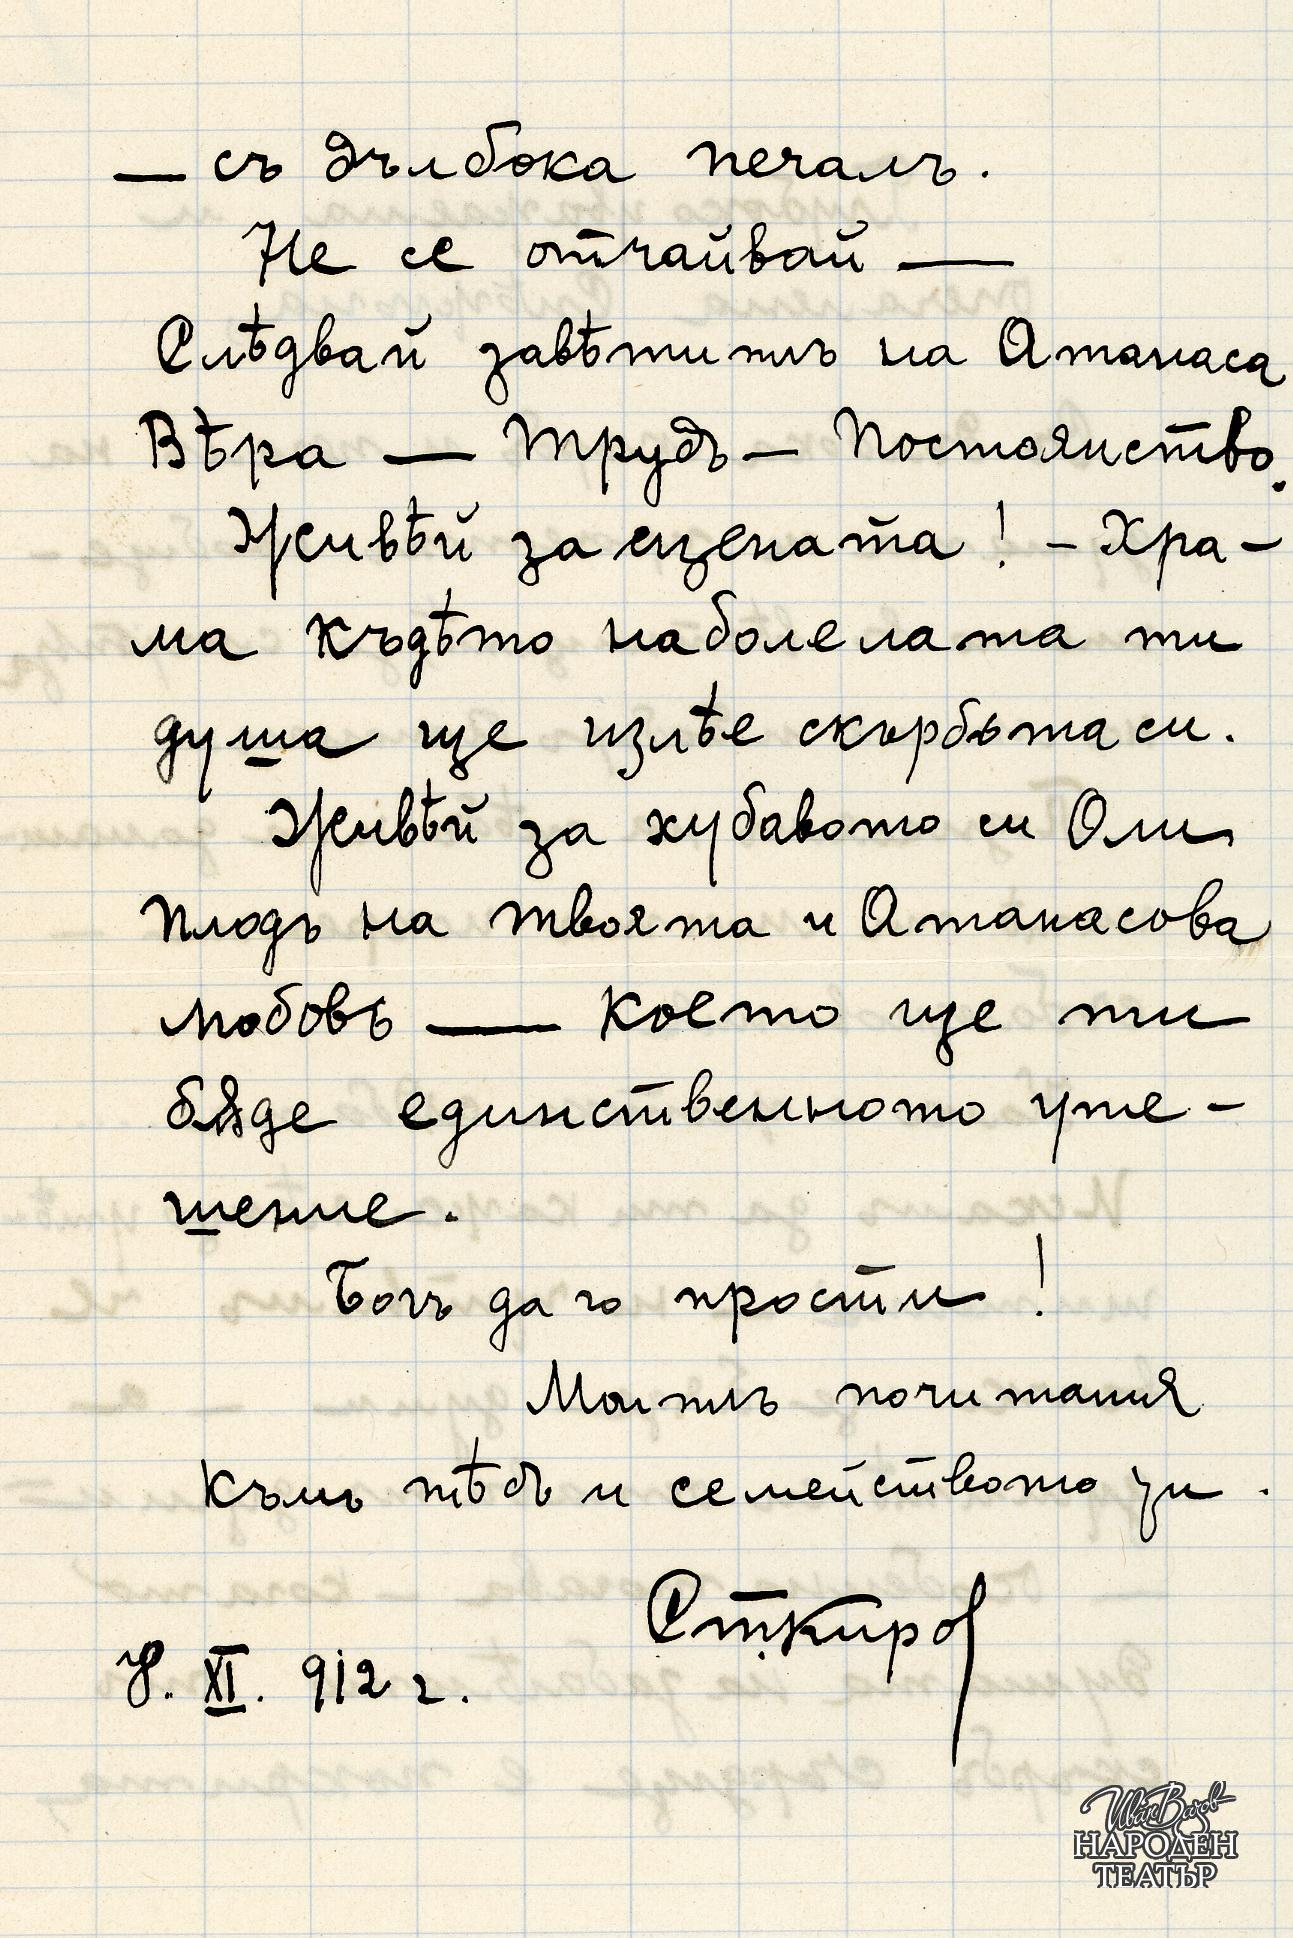 — съ дълбока печаль.
Не се отчайвай —
Слѣдвай завѣтитѣ на Атанаса
Вѣра — Трудъ — Постоянство.
Живѣй за сцената! — Хра-
ма кѫдѣто наболелата ти
душа ще излѣе скърбьта си.
Живѣй за хубавото си Оли
плодъ на твоята и Атанасова
любовь — което ще ти
бѫде единственното уте-
шение.
Богъ да го прости!
Моитъ почитания
къмъ тѣбъ и семейството ти.
Ст. Киров
8. XI. 912 г.
Иван Вазов
НАРОДЕН
ТЕАТЪР